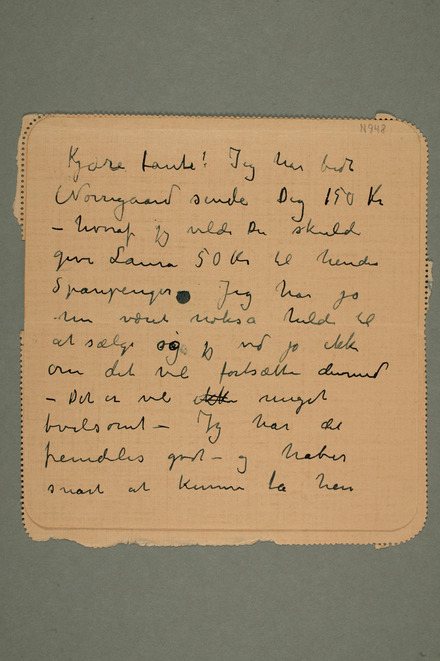 N 948
Kjære tante! Jeg har bedt
Nørregaard sende Dig 150 Kr
– hvoraf jeg vilde Du skulde
give Laura 50 Kr til hendes
Sparepenge. Jeg har jo
nu været nokså heldi til
at sælge og jeg ved jo ikke
om det vil fortsætte dermed
– Det er vel meget
tvilsomt – Jeg har det
fremdeles godt – og håber
snart at kunne ta hen